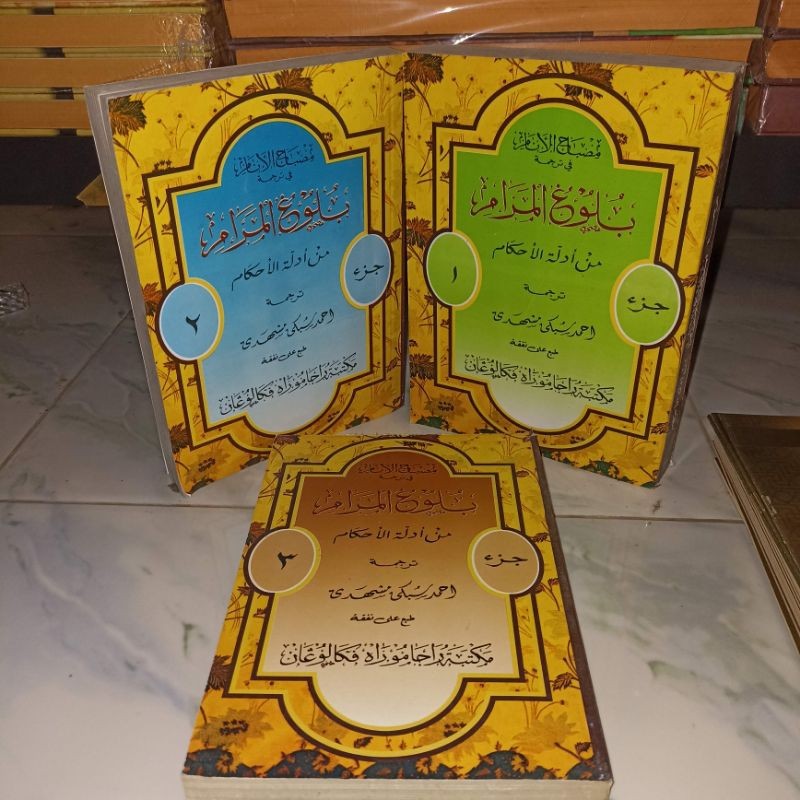 مصباح الأنام
في ترجمة
بُلُوغ المَرَام
من أدلة الأحكام
جزء
١
ترجمة
احمد سبكى مشهدى
طبع على نفقة
مكتبة راجا موراه فكالوڠان
مصباح الأنام
في ترجمة
بُلُوغ المَرَام
من أدلة الأحكام
جزء
٢
ترجمة
احمد سبكى مشهدى
طبع على نفقة
مكتبة راجا موراه فكالوڠان
مصباح الأنام
في ترجمة
بُلُوغ المَرَام
من أدلة الأحكام
جزء
٣
ترجمة
احمد سبكى مشهدى
طبع على نفقة
مكتبة راجا موراه فكالوڠان